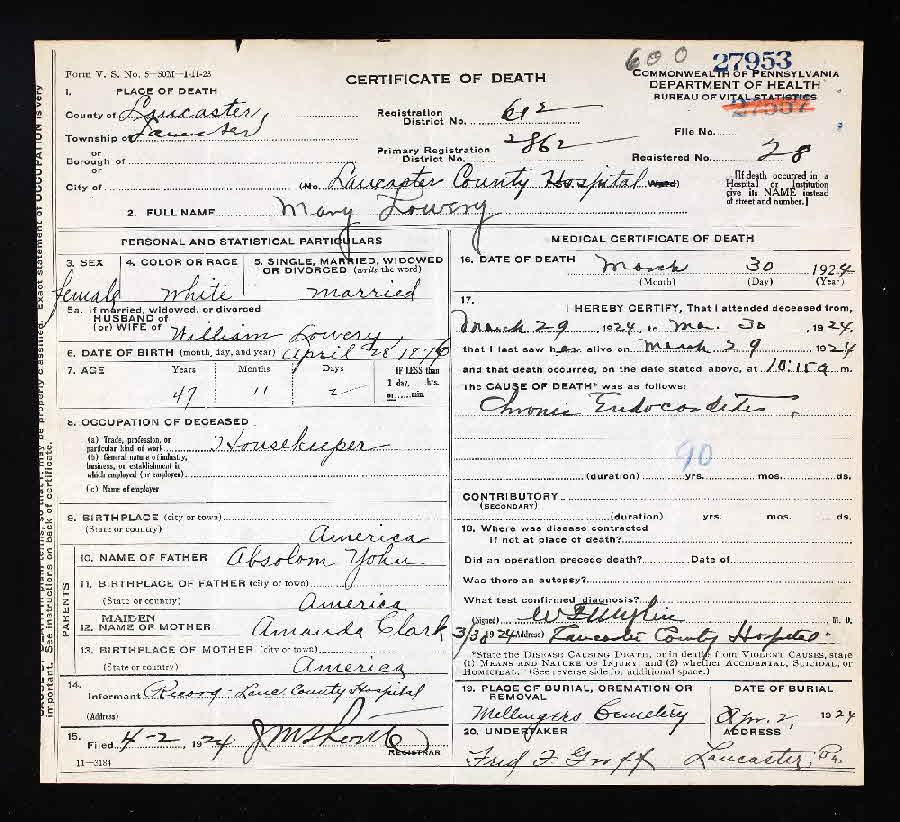 600 27953
Form V. S. No. 5—50M—1-11-23
CERTIFICATE OF DEATH
COMMONWEALTH OF PENNSYLVANIA
DEPARTMENT OF HEALTH
BUREAU OF VITAL STATISTICS
1. PLACE OF DEATH
County of Lancaster
Township of Lancaster
or
Borough of
or
City of
Registration District No. 612
Primary Registration District No. 2862
File No.
Registered No. 28
(No. Lancaster County Hospital Ward)
[If death occurred in a Hospital or Institution give its NAME instead of street and number.]
2. FULL NAME Mary Lowery
PERSONAL AND STATISTICAL PARTICULARS
3. SEX
female
4. COLOR OR RACE
White
5. SINGLE, MARRIED, WIDOWED OR DIVORCED (write the word)
married
5a. If married, widowed, or divorced
HUSBAND of
(or) WIFE of William Lowery
6. DATE OF BIRTH (month, day, and year) April 28 1876
7. AGE Years Months Days
47 11 2
IF LESS than
1 day, hrs.
or min.
8. OCCUPATION OF DECEASED
(a) Trade, profession, or particular kind of work Housekeeper
(b) General nature of industry, business, or establishment in which employed (or employer)
(c) Name of employer
9. BIRTHPLACE (city or town)
(State or country) America
PARENTS
10. NAME OF FATHER Absolom Yohn
11. BIRTHPLACE OF FATHER (city or town)
(State or country) America
12. MAIDEN NAME OF MOTHER Amanda Clark
13. BIRTHPLACE OF MOTHER (city or town)
(State or country) America
14.
Informant Record - Lanc. County Hospital
(Address)
15.
Filed 4-2, 1924
REGISTRAR
11—3184
MEDICAL CERTIFICATE OF DEATH
16. DATE OF DEATH
March 30 1924
(Month) (Day) (Year)
17.
I HEREBY CERTIFY, That I attended deceased from,
March 29, 1924, to Mar. 30 1924
that I last saw her alive on March 29 1924
and that death occurred, on the date stated above, at 10:15 a m.
The CAUSE OF DEATH* was as follows:
Chronic Endocarditis
90
(duration) yrs. mos. ds.
CONTRIBUTORY
(SECONDARY)
(duration) yrs. mos. ds.
18. Where was disease contracted
if not at place of death?
Did an operation precede death? Date of
Was there an autopsy?
What test confirmed diagnosis?
(Signed) M. D.
3/30 1924 (Address) Lancaster County Hospital
*State the DISEASE CAUSING DEATH, or in deaths from VIOLENT CAUSES, state (1) MEANS AND NATURE OF INJURY, and (2) whether ACCIDENTAL, SUICIDAL, or HOMICIDAL. (See reverse side for additional space.)
19. PLACE OF BURIAL, CREMATION OR REMOVAL
Mellingers Cemetery
DATE OF BURIAL
Apr. 2, 1924
20. UNDERTAKER
Fred F. Groff
ADDRESS
Lancaster, Pa.
Exact statement of OCCUPATION is very
important. See instructions on back of certificate.